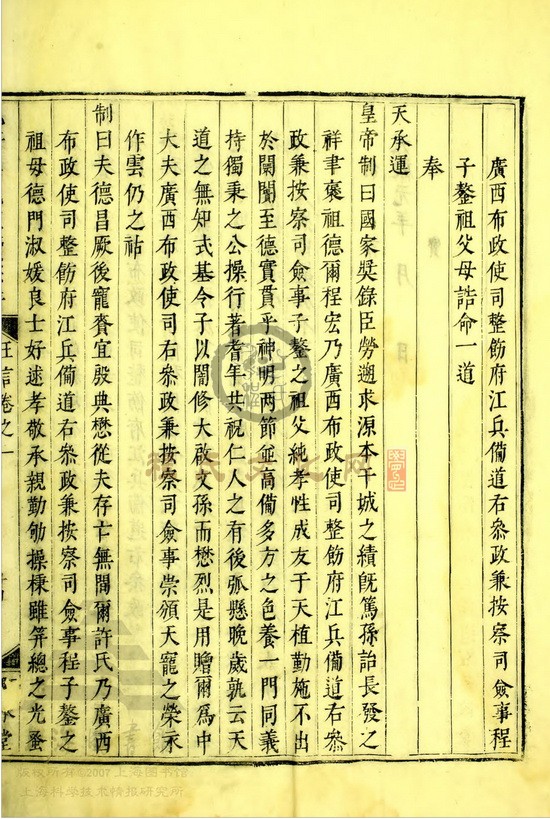 廣西布政使司整飭府江兵備道右叅政兼按察司僉事程
子鏊祖父母誥命一道
奉
天承運
皇帝制曰國家奬錄臣勞遡求源本干城之績旣篤孫詒長發之
祥聿褒祖德爾程宏乃廣西布政使司整飭府江兵備道右叅
政兼按察司僉事子鏊之祖父純孝性成友于天植勤施不出
於閭閻至德實貫乎神明兩節並高備多方之色養一門同義
持獨秉之公操行著耆年共祝仁人之有後弧懸晚歲孰云天
道之無知式基令子以闇修大啟文孫而懋烈是用贈爾爲中
大夫廣西布政使司右叅政兼按察司僉事崇頒天寵之榮示
作雲仍之祜
制曰夫德昌厥後寵賚宜殷典懋從夫存亡無間爾許氏乃廣西
布政使司整飭府江兵備道右叅政兼按察司僉事程子鏊之
祖母德門淑媛良士好逑孝敬承親勤劬操棟雖笄總之光蚤
卷之一
堂
版权所有©2007上海图书馆
上海科学技术情报研究所